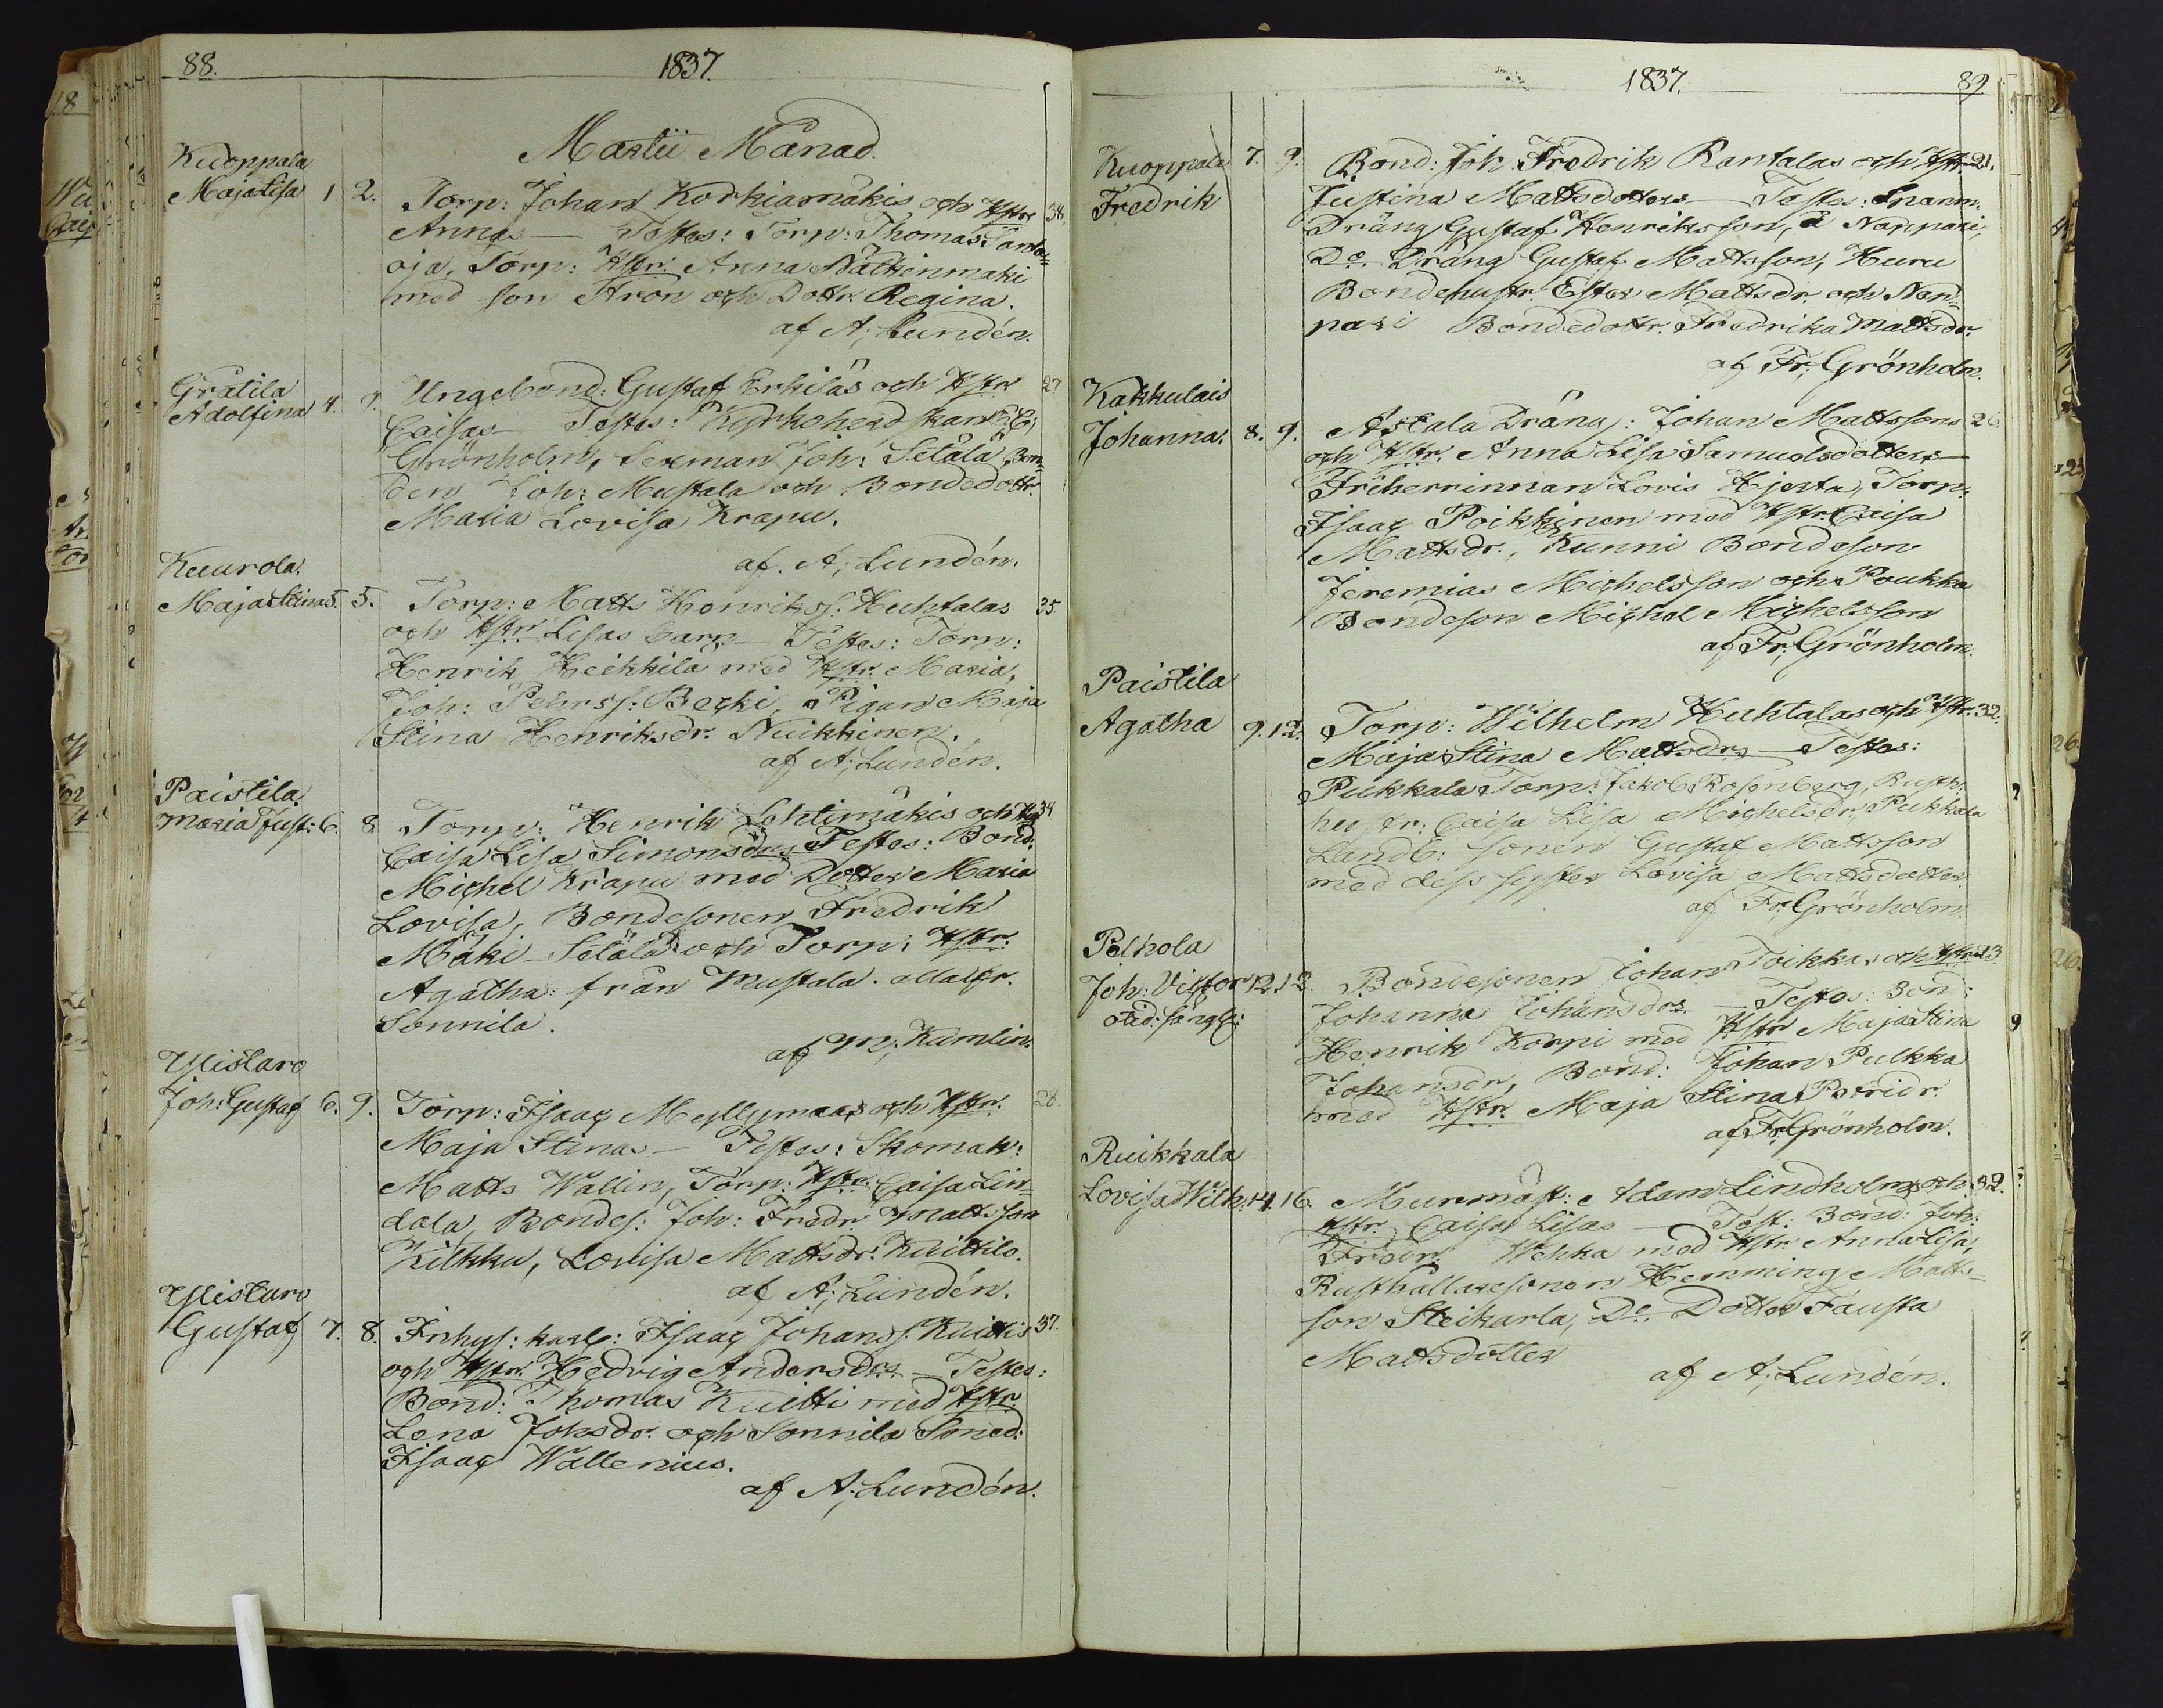 88.
1837.
Martii Månad.
Kuoppala
Maja Lisa 1. 2. Torp: Johan Korkiamäkis och Hstr 38.
Annas — Testes: Torp: Thomas Panta=
oja, Torp: Hstr. Anna Nälkinmäki
med son Aron och Dottr. Regina.
af A; Lundén.
Gratila
Adolfina 4. Unge bond: Gustaf Erkiläs och Hstr 27
Caisas — Testes: Kyrkoherdskan
Grönholm, Sexman Joh: Setälä, Bon=
den Joh: Mustala och Bondedottr.
Maria Lovisa Krapu.
af. A; Lundén.
Kuurola.
Maja Stina 5. 5. Torp: Matts Henriks. Huhtalas 35.
och Hstr Lisas barn — Testes: Torp:
Henrik Heikkilä med Hstr. Maria,
Joh: Pehrss: Becki, Pigan Maja
Stina Henriksdr. Nuikkinen.
af A; Lundén.
Paistila.
Maria Just: 6. 8. Torp: Henrik Lehtimäkis och Hr 34
Caisa Lisa Simonsdrs Testes: Bond:
Michel Krapu med Dotter Maria
Lovisa, Bondesonen Fredrik
Mäki-Setälä och Torp: Hstr.
Agatha: från Mustala. alla fr.
Sonnila.
af M; Kumlin.
Ylistaro
Joh: Gustaf 6. 9. Torp: Isaac Myllymaas och Hstr. 28.
Maja Stinas — Testes: Skomak:
Matts Wallin, Torp: Hstr. Caisa Lin=
dala, Bondes: Joh: Fredr Mattsson
Kilkku, Lovisa Mattsdr. Kuittilo.
af A; Lundén.
Ylistaro
Gustaf 7. 8. Inhys: karl: Isaac Johanss. Kuittis 37.
och Hstr. Hedvig Andersdrs — Testes:
Bond: Thomas Kuitti med Hstr.
Lena Johsdr. och Sonnila Smed:
Isaac Wallenius.
af A; Lundén.
1837.
89.
Kuoppala 7. 9. Bond: Joh. Fredrik Rantalas och Hstr. 21.
Fredrik
Justina Mattsdotters — Testes:
Dräng Gustaf Henriksson, å Nappari,
Do. Dräng Gustaf Mattsson, Huru
Bondehustr. Ester Mattsdr. och Nap=
pari Bondedottr. Fredrika Mattsdr.
af Fr; Grönholm.
Kakkulais
Johanna. 8. 9. Askala Dräng: Johan Mattssons 26.
och Hstr. Anna Lisa Samuelsdotters —
Friherrinnan Lovis Hjerta, Torp:
Isaac Poikkinen med Hstr. Caisa
Mattsdr., Kunni Bondeson
Jeremias Michelsson och Poukka
Bondeson Michel Michelsson
af Fr; Grönholm.
Paistila
Agatha 9. 12. Torp: Wilhelm Huhtalas och Hstr. 32.
Maja Stina Mattsdrs — Testes:
Pukkala Torp: Jakob Rosenberg, Rusth:
hustr: Caisa Lisa Michelsdr, Pukkala
Landb: sonen Gustaf Mattsson
med dess syster Lovisa Mattsdotter
af Fr; Grönholm.
Pelhola
Joh: Victor 12. 13. Bondesonen Johan Toikkas och Hstr. 23.
Johanna Johansdrs — Testes: Bond:
Henrik Korpi med Hstr Maja Stina
Johansdr, Bond: Johan Pukka
med Hstr. Maja Stina Petridr.
af Fr; Grönholm.
Ruikkala
Lovisa Wilh: 14. 16. Murmäst: Adam Lindholms och 32.
Hstr. Caisa Lisas — Test: Bond: Joh:
Fredr. Wehka med Hstr. Anna Lisa,
Rusthållaresonen Hemming Matts=
son Steikarla, Do. Dotter Fausta
Mattsdotter
af A; Lundén.